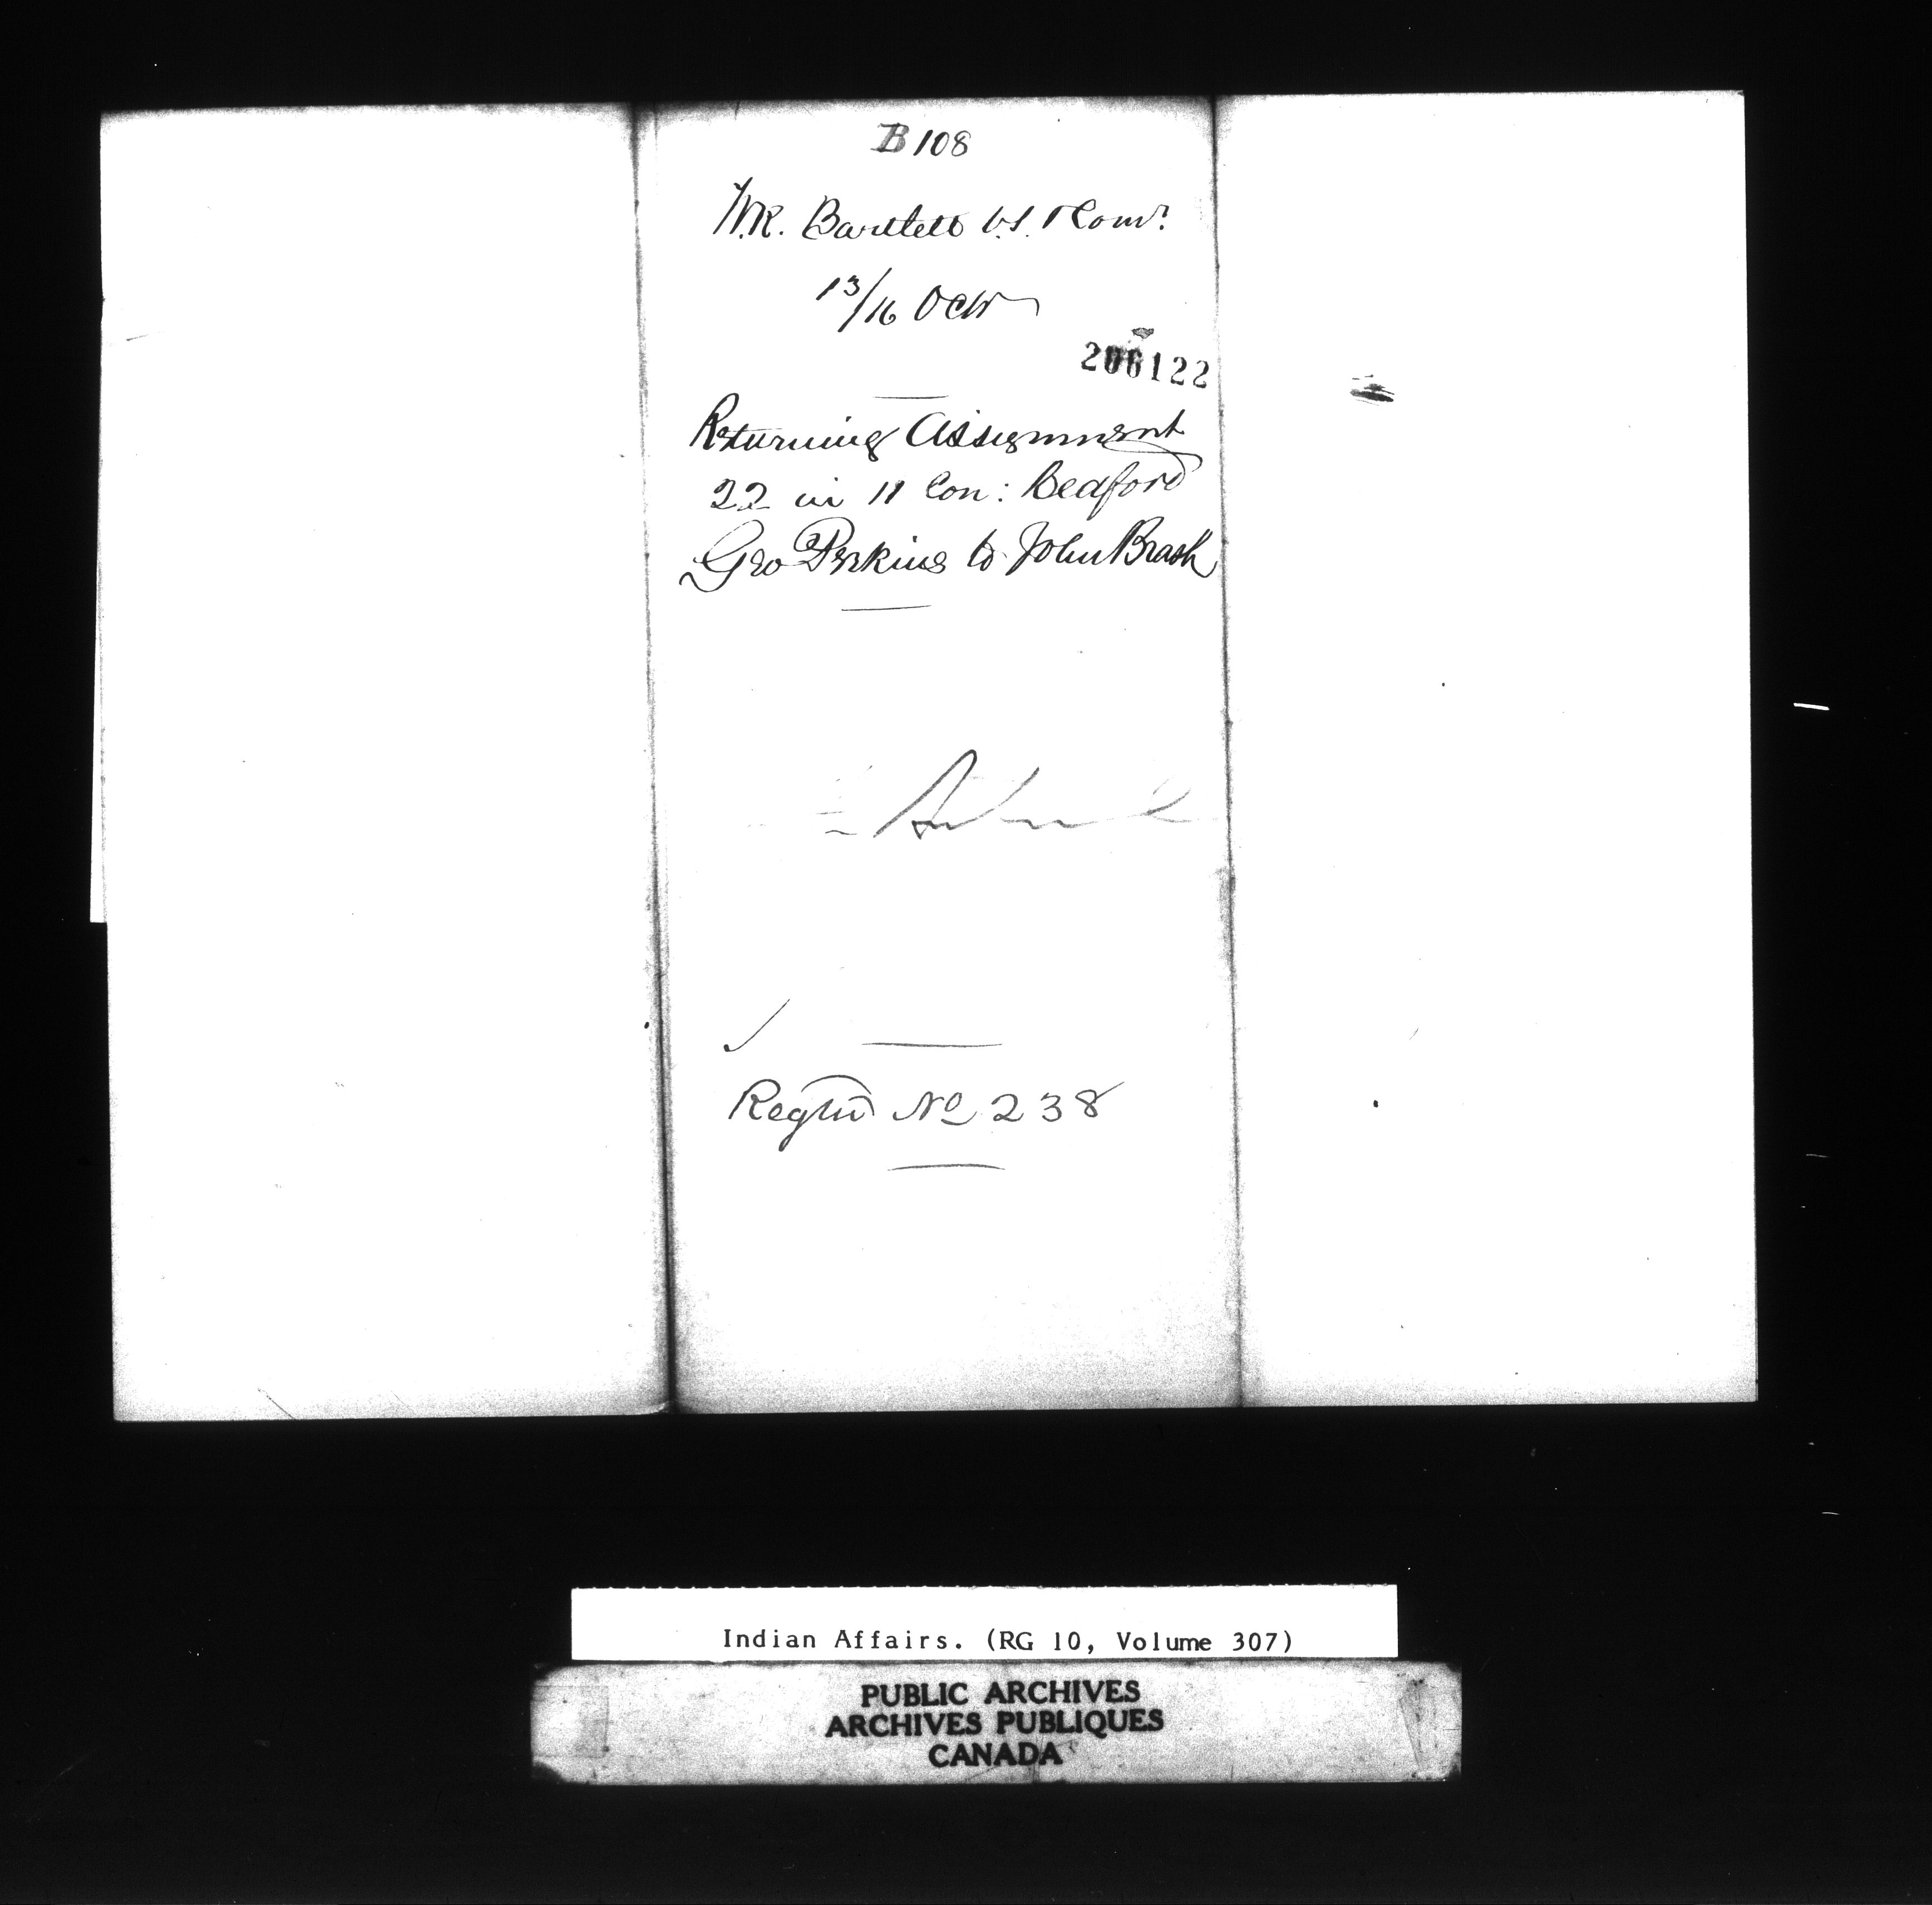 B 108
W.R. Bartlett V.S. & Comr
13/16 Octr
206122
Returning Assignment
22 in 11 Con: Bedford
Geo Perkins to John Brash
Regtrd No 238
Indian Affairs. (RG 10, Volume 307)
PUBLIC ARCHIVES
ARCHIVES PUBLIQUES
CANADA